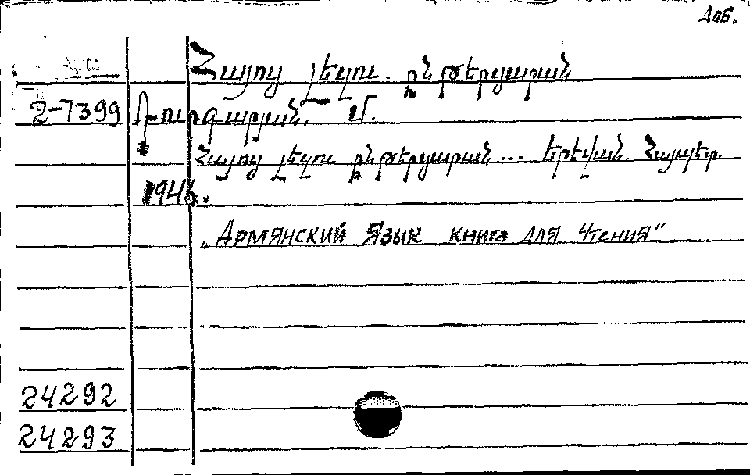 Доб.
Հայոց լեզու. ընթերցարան
2-7399
Հայոց լեզու ընթերցարան... Երևան Հայպետ.
194
„Армянский Язык книга для Чтения"
24292
24293